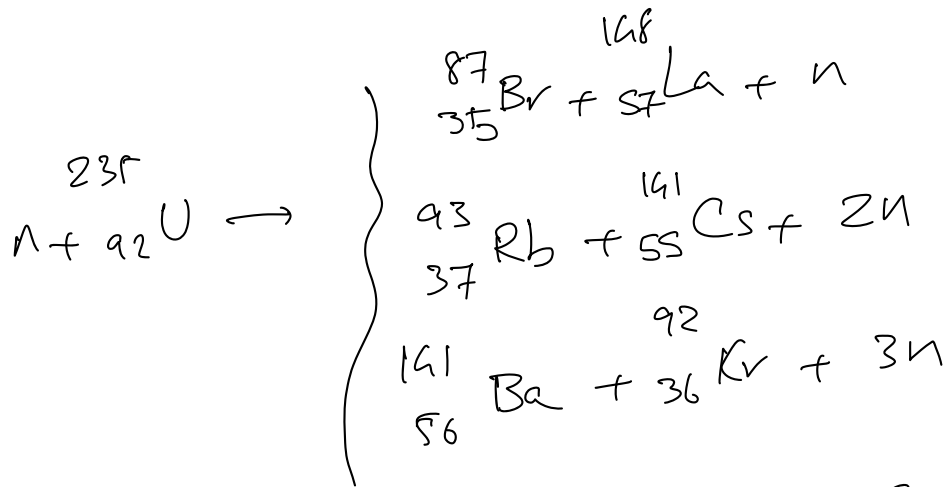 n + ²³⁵₉₂U ⟶
⁸⁷₃₅Br + ¹⁴⁸₅₇La + n
⁹³₃₇Rb + ¹⁴¹₅₅Cs + 2n
¹⁴¹₅₆Ba + ⁹²₃₆Kr + 3n